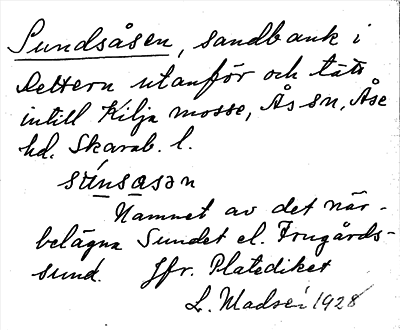 Sundsåsen, sandbank i
Dettern utanför och tätt
intill Kilja mosse, Ås sn, Åse
hd. Skarab. l.
su̇nsåsən
Namnet av det när-
belägna Sundet el. Frugårds-
sund. Jfr. Platediket
L. 1928